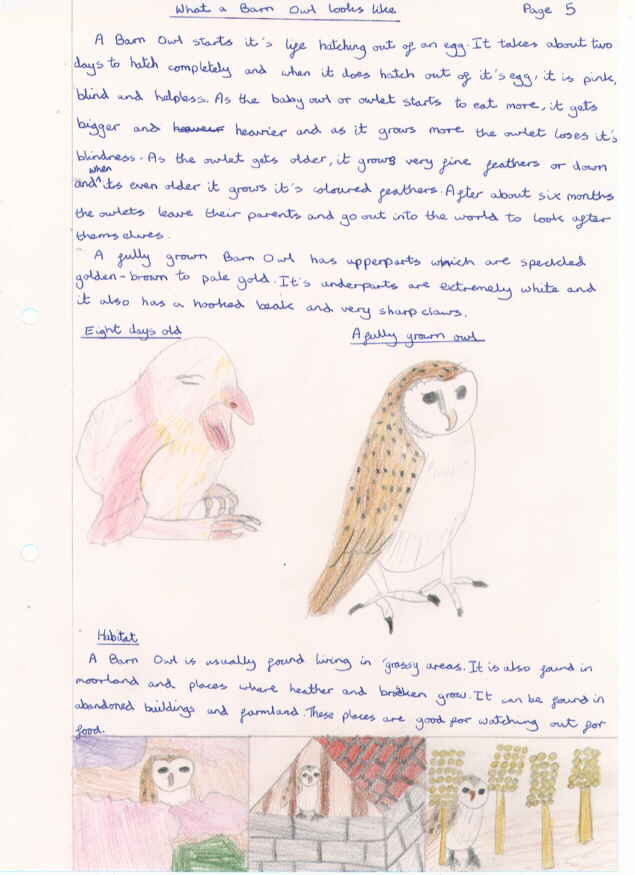 What a Barn Owl looks like Page 5
A Barn Owl starts it's life hatching out of an egg. It takes about two
days to hatch completely and when it does hatch out of it's egg, it is pink,
blind and helpless. As the baby owl or owlet starts to eat more, it gets
bigger and heavier and as it grows more the owlet loses it's
blindness. As the owlet gets older, it grows very fine feathers or down
and when its even older it grows it's coloured feathers. After about six months
the owlets leave their parents and go out into the world to look after
themselves.
A fully grown Barn Owl has upperparts which are speckled
golden-brown to pale gold. It's underparts are extremely white and
it also has a hooked beak and very sharp claws.
Eight days old A fully grown owl
Habitat
A Barn Owl is usually found living in grassy areas. It is also found in
moorland and places where heather and bracken grow. It can be found in
abandoned buildings and farmland. These places are good for watching out for
food.